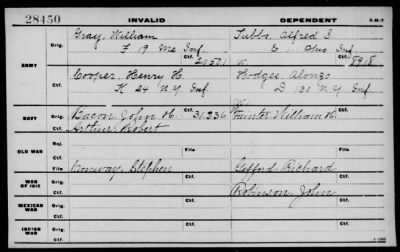 28450 INVALID DEPENDENT 3-H-7
Gray, William Tubbs, Alfred S.
ARMY Orig. F 19 Me Inf. E 11 Inf.
Ctf. Ctf. 8918
Cooper, Henry H. Hodges, Alonzo
Orig. K 24 N.Y. Inf D 130 N.Y. Inf
Ctf.
NAVY Orig. Bacon, John H. Ctf. 31,236 William H.
Ctf. Arthur, Robert
OLD WAR Rej.
Ctf. File File
WAR OF 1812 Orig. Conway, Stephen Gifford Richard
Ctf. Robinson, John
MEXICAN WAR Orig.
Ctf.
INDIAN WAR Orig.
Ctf.